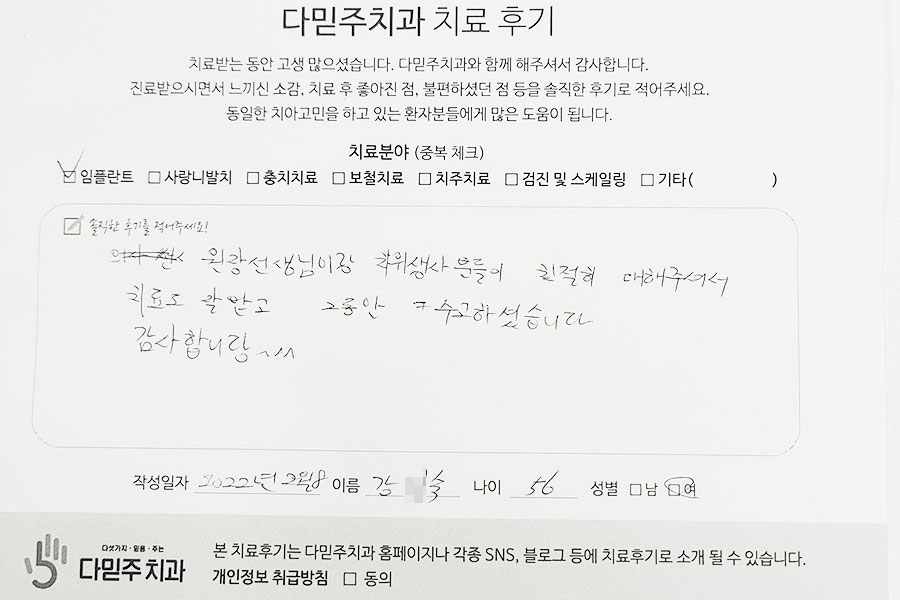 다믿주치과 치료 후기
치료받는 동안 고생 많으셨습니다. 다믿주치과와 함께 해주셔서 감사합니다.
진료받으시면서 느끼신 소감, 치료 후 좋아진 점, 불편하셨던 점 등을 솔직한 후기로 적어주세요.
동일한 치아고민을 하고 있는 환자분들에게 많은 도움이 됩니다.
치료분야 (중복 체크)
☑ 임플란트 □ 사랑니발치 □ 충치치료 □ 보철치료 □ 치주치료 □ 검진 및 스케일링 □ 기타( )
솔직한 후기를 적어주세요!
원장선생님이랑 치위생사 분들이 친절히 대해주셔서
치료도 잘 받고 그동안 수고하셨습니다
감사합니당 ^^
작성일자 2022년 2월8 이름 강 나이 56 성별 □남 □여
다섯가지·믿음·주는
다믿주치과
본 치료후기는 다믿주치과 홈페이지나 각종 SNS, 블로그 등에 치료후기로 소개 될 수 있습니다.
개인정보 취급방침 □ 동의